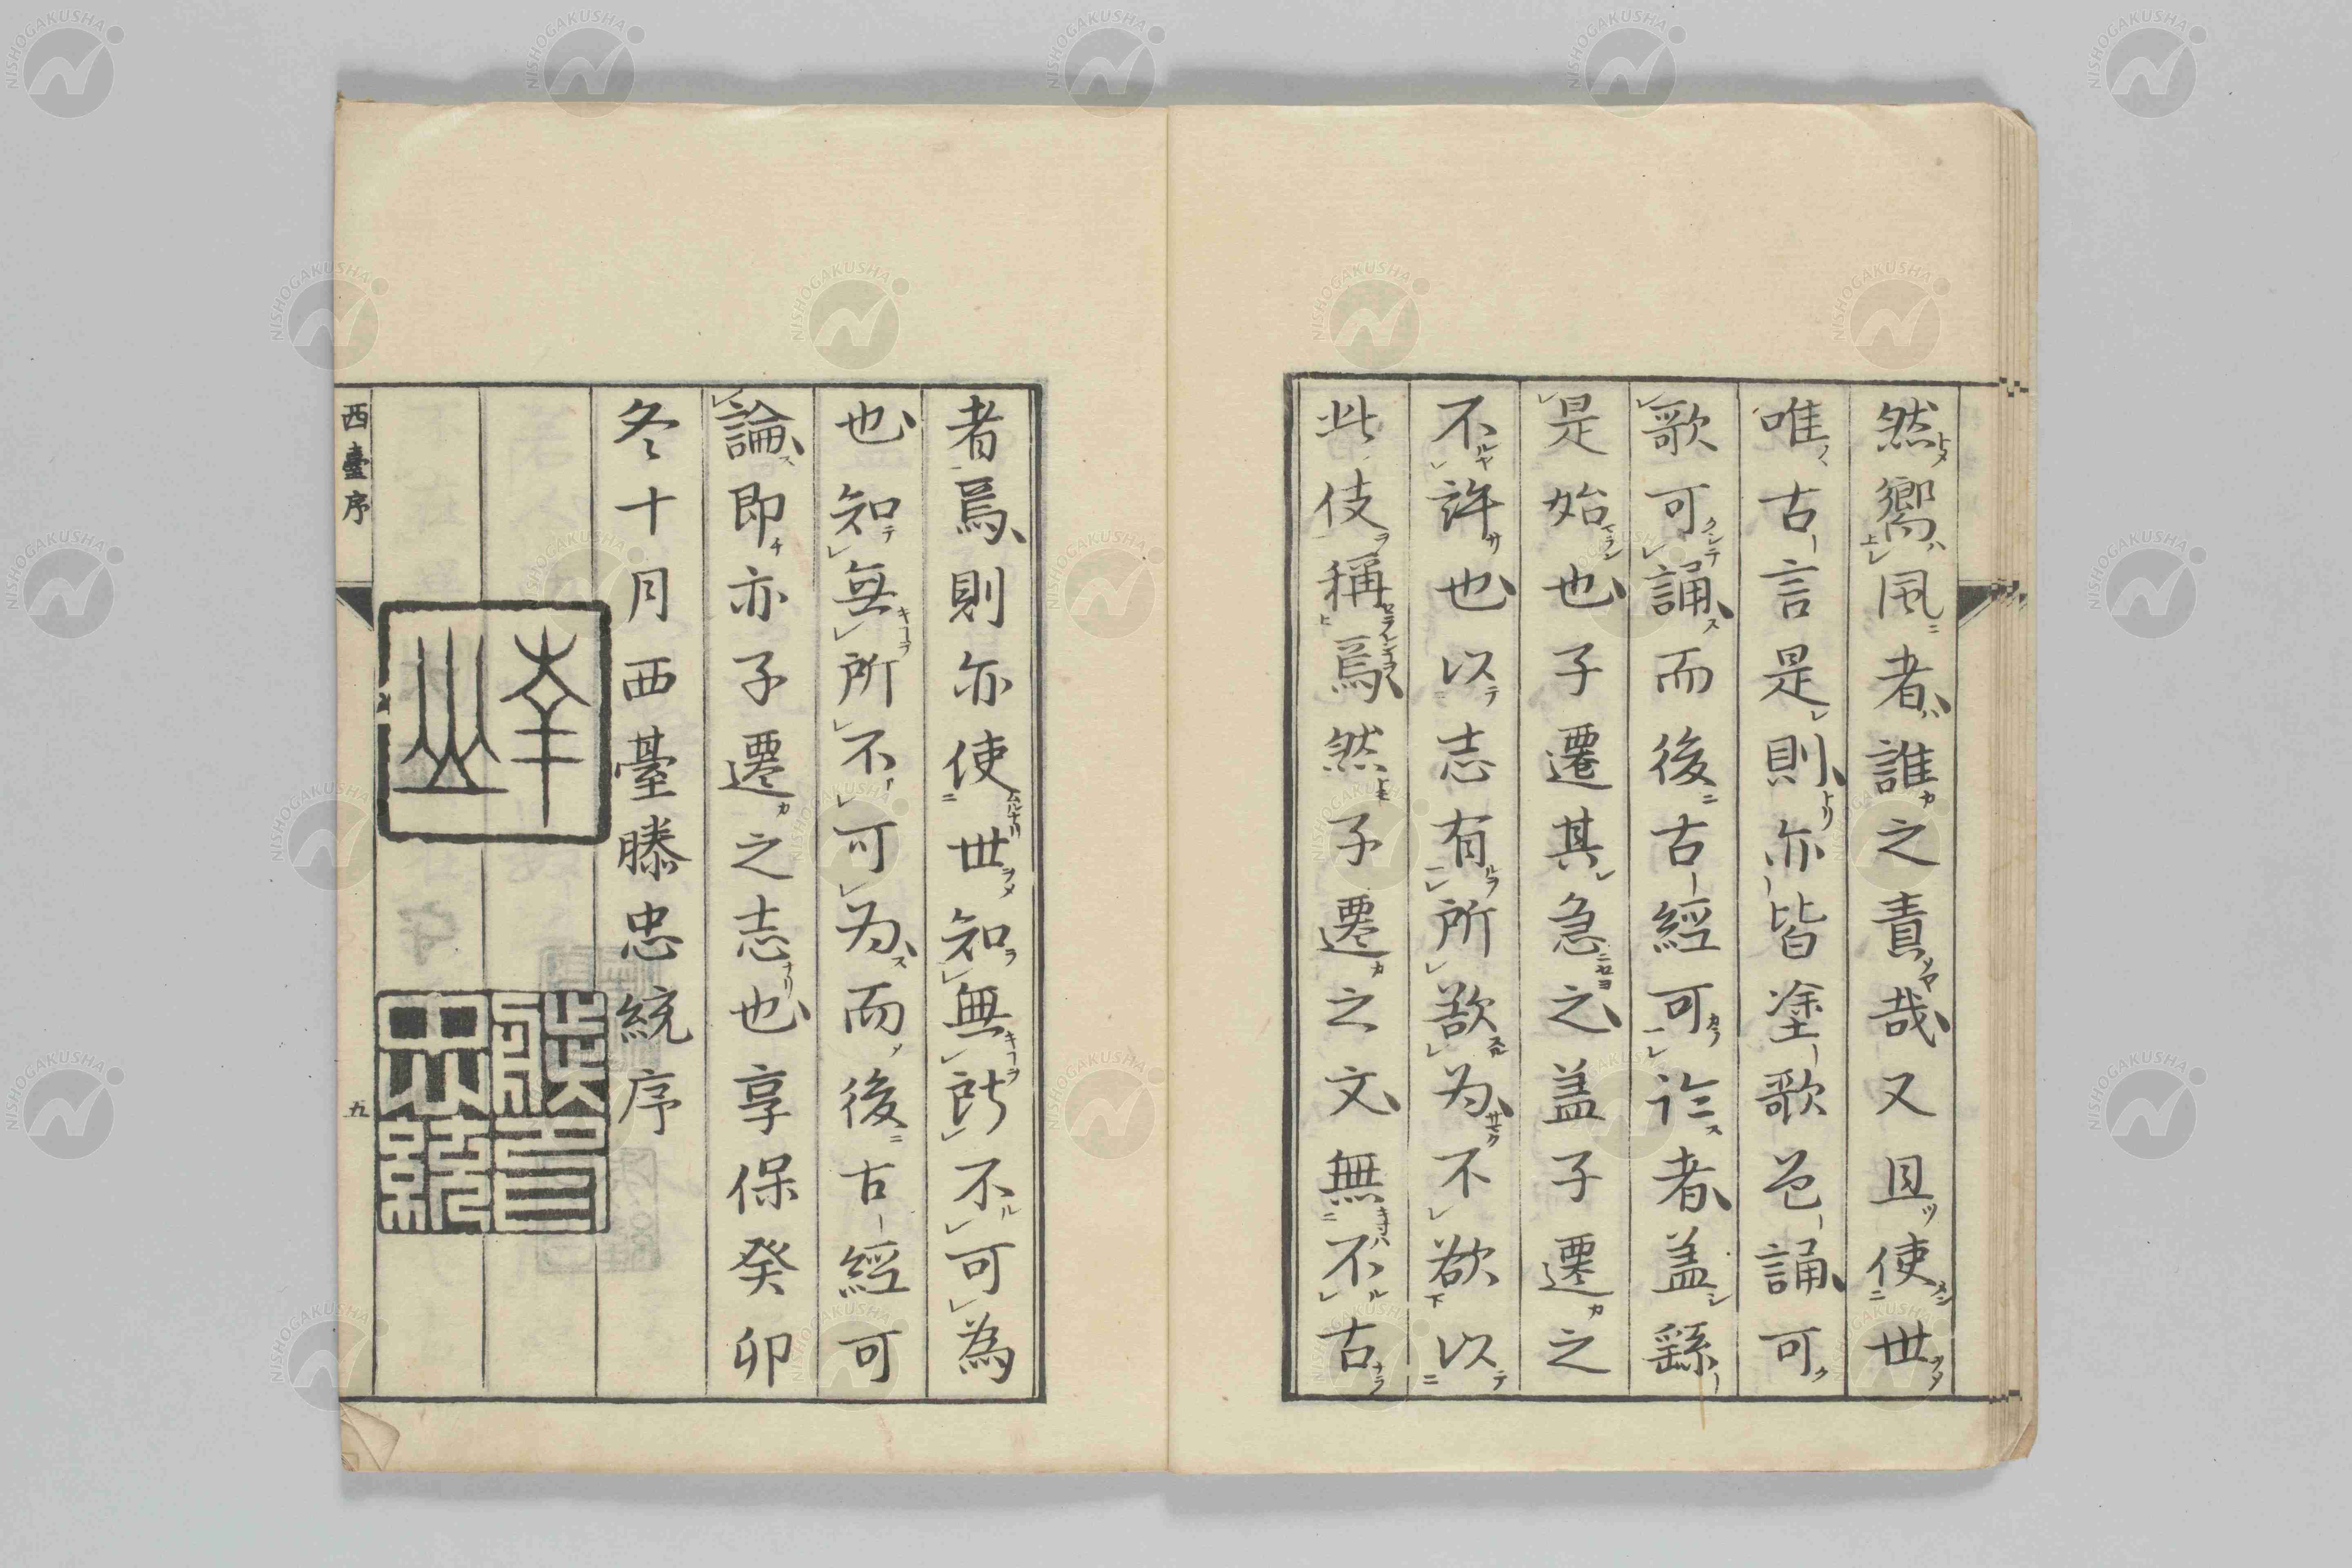 然嚮風者誰之責哉又且使世
唯古言是則亦皆塗歌邑誦可
歌可誦而後古經可論者盖繇
是始也子遷其急之盖子遷之
不許也以志有所欲为不欲以
此伎稱焉然子遷之文無不古
者焉則亦使世知無所不可為
也知無所不可为而後古經可
論即亦子遷之志也享保癸卯
冬十月西臺滕忠統序
西臺序
五
NISHOGAKUSHA